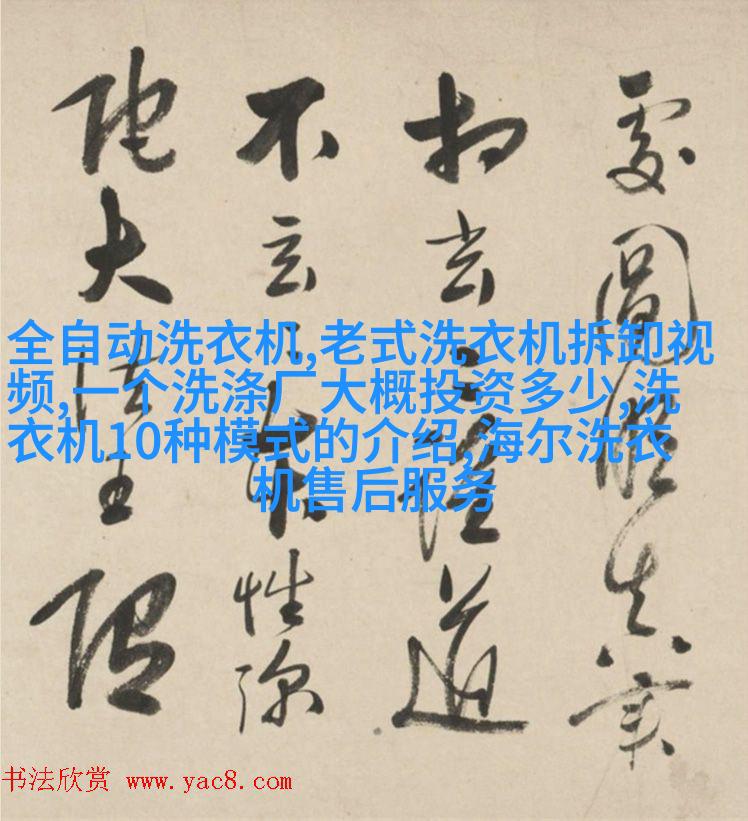 全自动洗衣机,老式洗衣机拆卸视
频,一个洗涤厂大概投资多少,洗
衣机10种模式的介绍,海尔洗衣
机售后服务
處圓
去道
不云性
陀大法王
书法欣赏 www.yac8.com